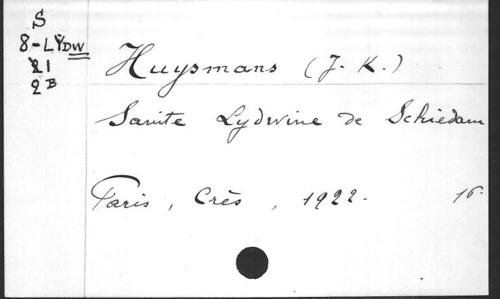 S
8-LYDW
21
2B
Huysmans (J. K.)
Sainte Lydwine de Schiedam
Paris, Crès, 1922. 16.